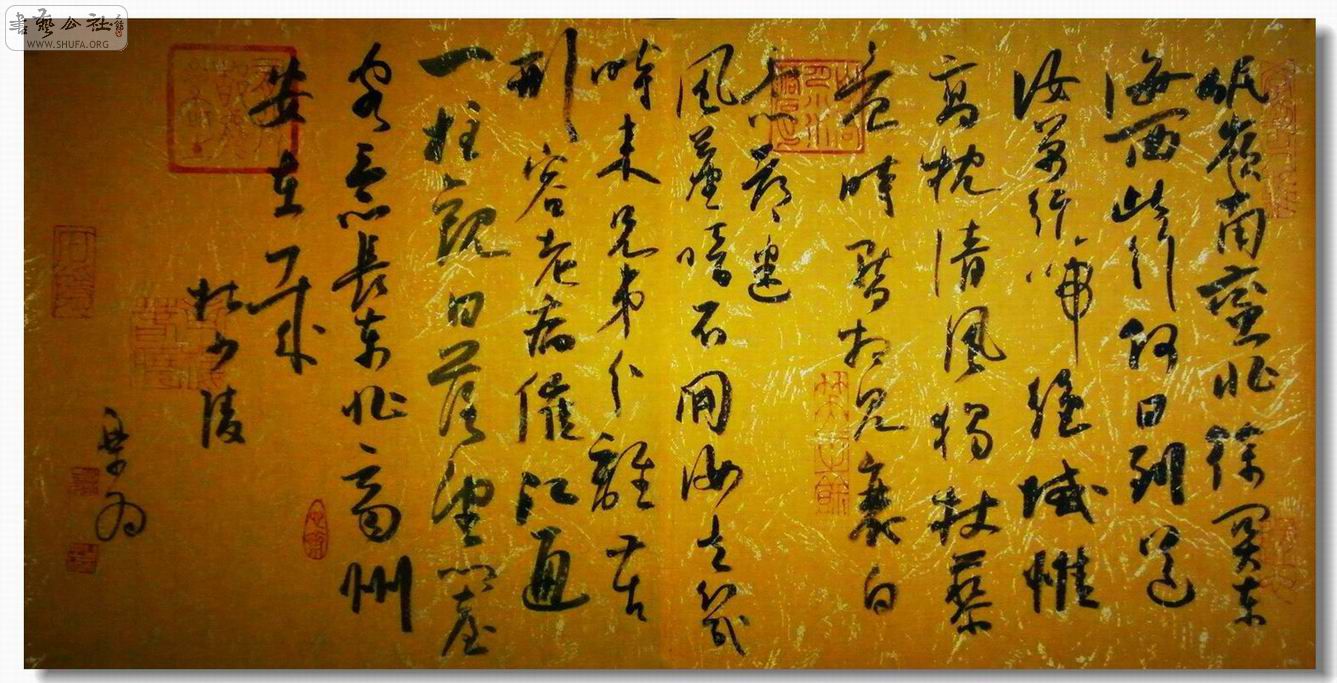 書藝公社
WWW.SHUFA.ORG
岷嶺南蠻北徐関東
海西此行何日到送
汝萬行啼絶域惟
高枕清風獨杖藜
危時暫相見衰白
意都迷
風塵暗不開汝去幾
時来兄弟分離苦
形容老病催江通
一柱觀日落望鄉臺
客意長東北齊州
安在哉
杜少陵